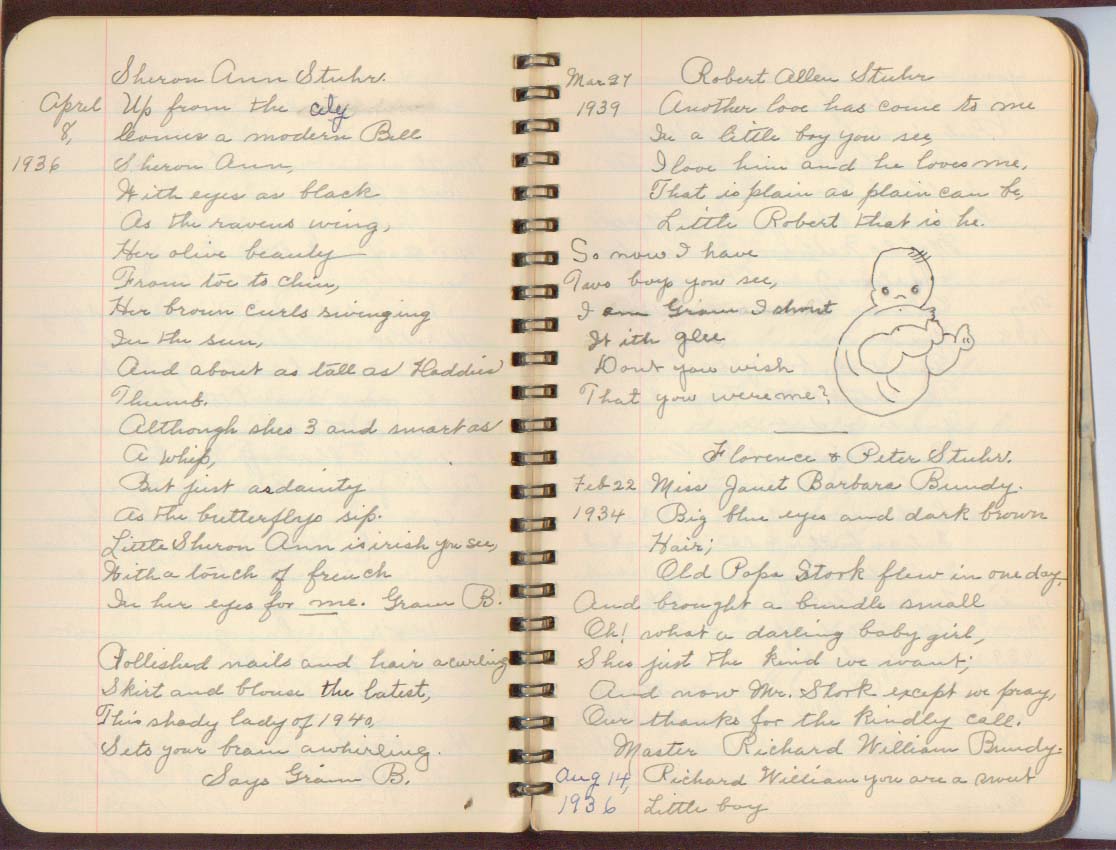 Sheron Ann Stuhr.
April Up from the city
8, comes a modern Bell
1936 Sheron Ann,
With eyes as black
As the ravens wing,
Her olive beauty
From toe to chin,
Her brown curls swinging
In the sun,
And about as tall as
Thumb.
Although shes 3 and smart as
A whip,
But just as dainty
As the butterflys sip.
Little Sheron Ann is irish you see,
With a touch of french
In her eyes for me. Gram B.
Pollished nails and hair a curling
Skirt and blouse the latest,
This shady lady of 1940,
Sets your brain awhirling.
Says Gram B.
Mar 27 Robert Allen Stuhr
1939 Another love has come to me
In a little boy you see,
I love him and he loves me,
That is plain as plain can be,
Little Robert that is he.
So now I have
Two boys you see,
I am Gram I shout
With glee
Dont you wish
That you were me?
Florence & Peter Stuhr.
Feb 22 Miss Janet Barbara Bundy.
1934 Big blue eyes and dark brown
Hair;
Old Papa Stork flew in one day,
And brought a bundle small
Oh! what a darling baby girl,
Shes just the kind we want;
And now Mr. Stork except we pray,
Our thanks for the kindly call.
Master Richard William Bundy.
Aug 14, Richard William you are a sweet
1936 Little boy